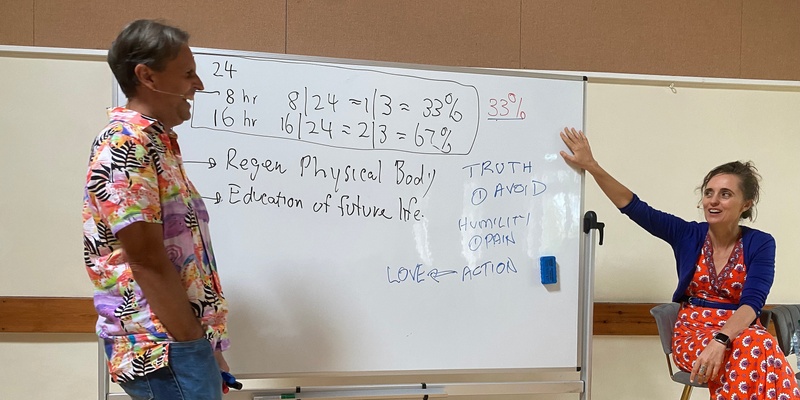 24
8 hr 8|24 = 1|3 = 33%
16 hr 16|24 = 2|3 = 67%
33%
→ Regen Physical Body
→ Education of future life.
TRUTH
① AVOID
HUMILITY
① PAIN
LOVE ← ACTION